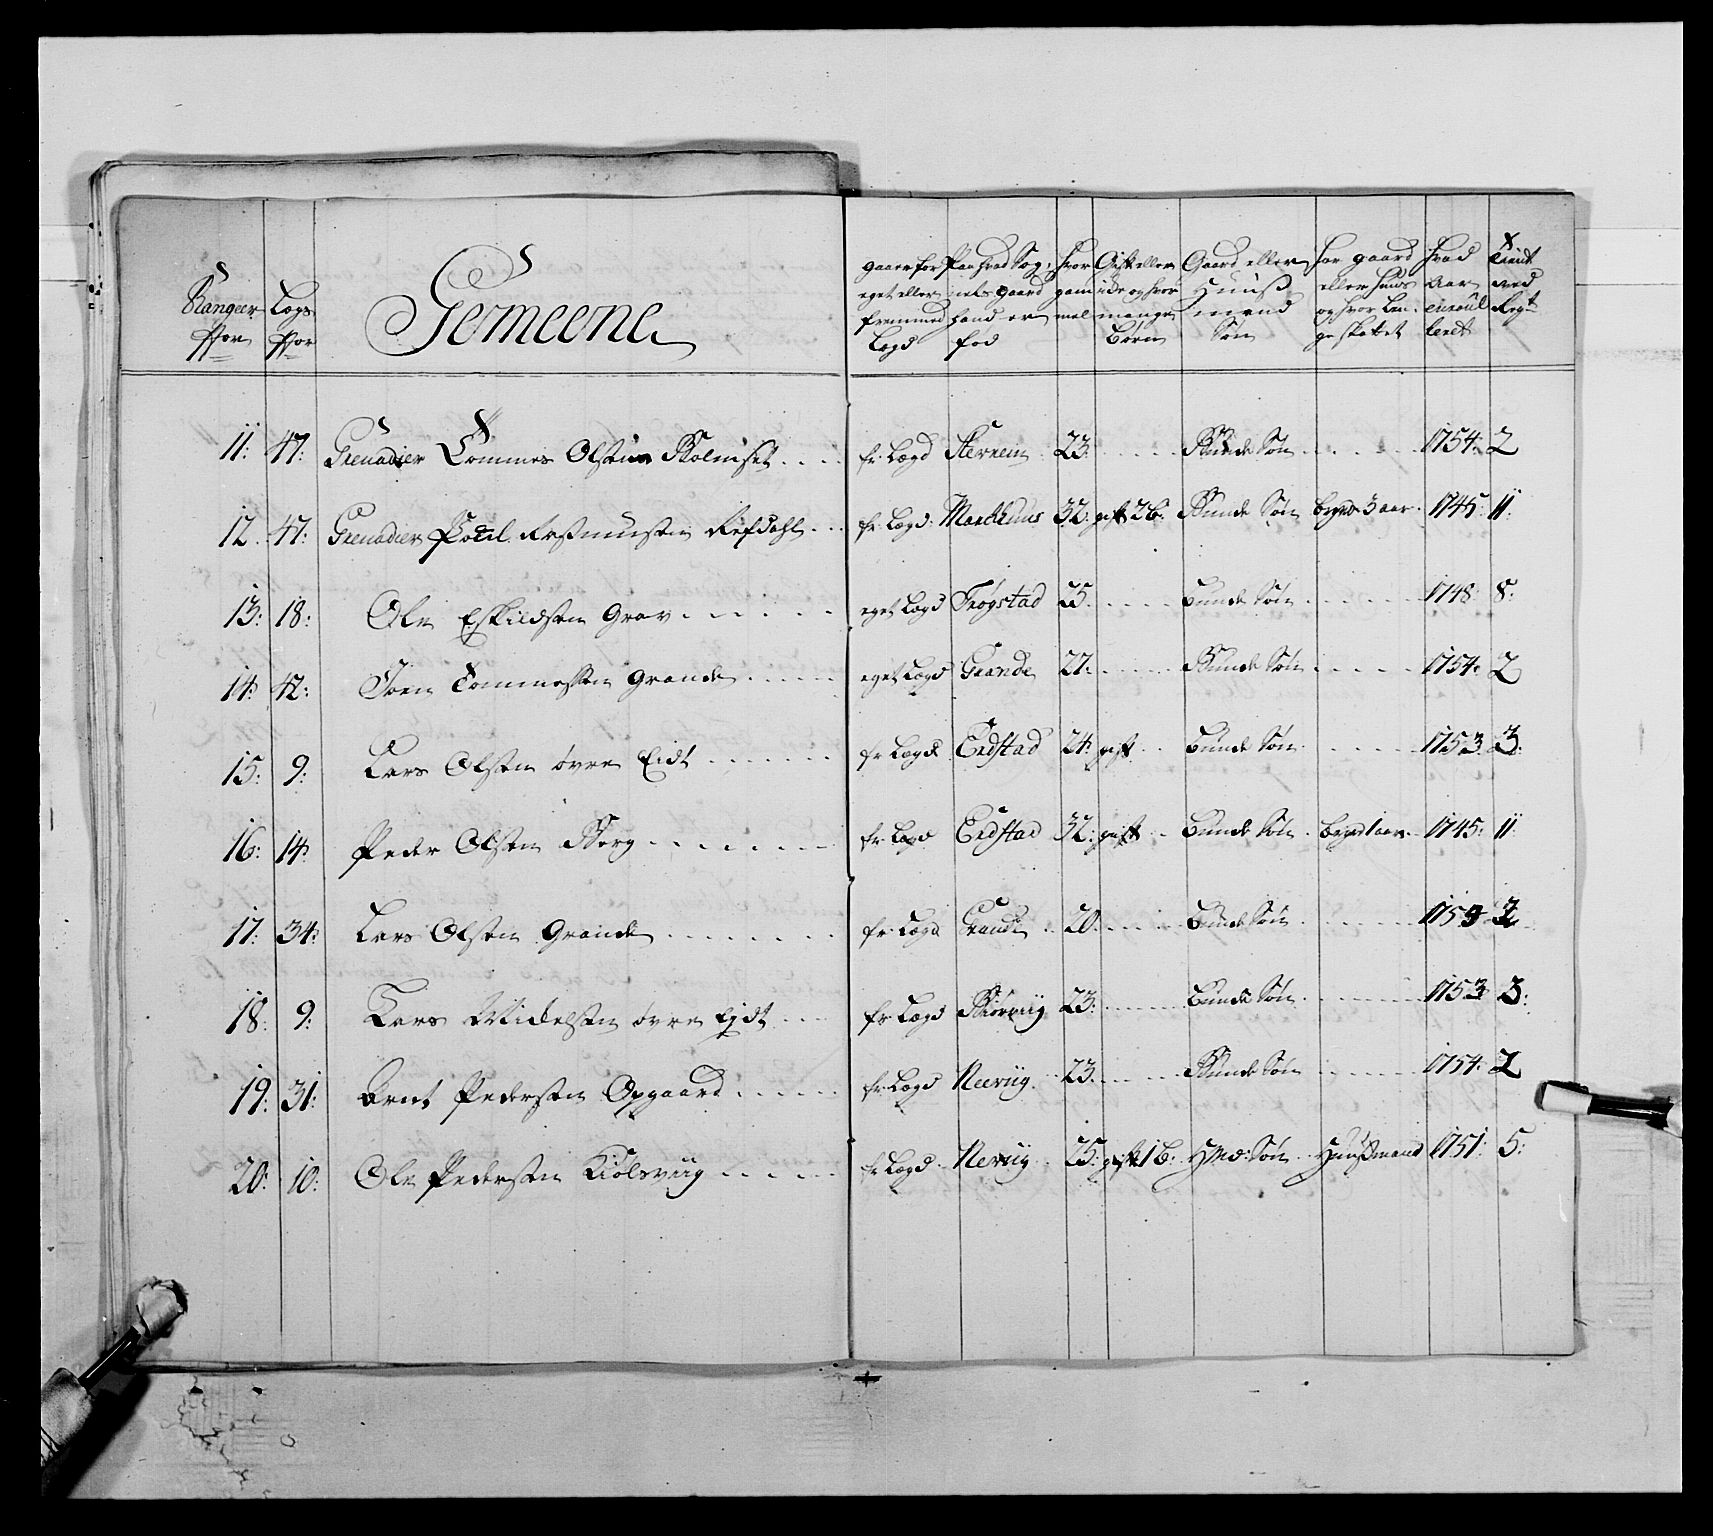 Rangeer Nor
Lægs Nor
Gemeene
gaaer for eget eller fremmed Lægd
Paa hvad Sogn, nels gaard hand er fød
hvor gam mel
Gift eller ide og hvor mange Børn
Gaard eller Huus mand Søn
har gaard eller huus og hvor Len ge
hvad Aar enroul leret
Tient ved Regt
11: 47: Grenadier Tommes Olsen fr Lægd 23: Bunde Søn 1754: 2
12. 47: Grenadier Poul Rasmusen Refdahl fr: Lægd: 32: gift 2 b: Bunde Søn 3 aar 1745: 11:
13: 18: Ole Eskildsen Grav eget Lægd Frøgstad Bunde Søn 1748: 8:
14: 42: Joen Tommessen Grande eget Lægd Grande 27: Bunde Søn 1754: 2
15: 9: Lars Olsen øvre Eidt fr Lægd Erdstad 24: gift Bunde Søn 1753: 3:
16: 14: Peder Olsen Borg fr: Lægd Erdstad 32: gift Bunde Søn 1 aar 1745: 11:
17: 34: Lars Olsen Grande fr Lægd Grande 20: Bunde Søn
18: 9: Lars Mickelsen øvre Ejdt fr Lægd 23: Bunde Søn 1753 3:
19: 31: Arnt Pedersen Opgaard fr Lægd Neerviig 23: Bunde Søn 1754: 2
20: 10: Ole Pedersen Kiølsviig fr Lægd Nerviig 25: gift 1 b: H M: Søn Huusmand 1751: 5: